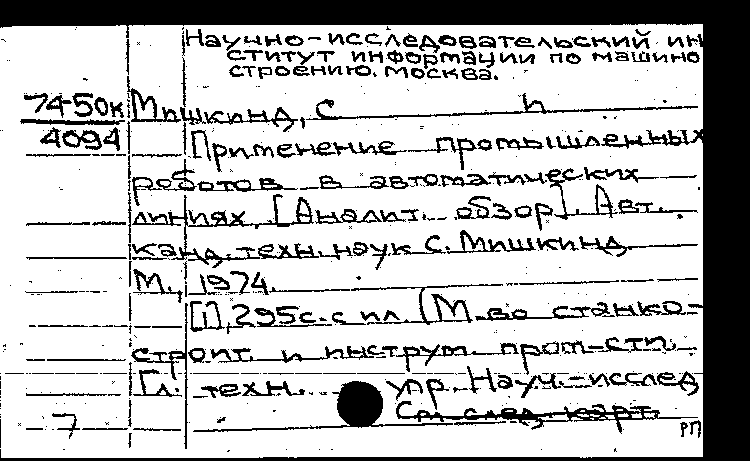 Научно-исследовательский ин
ститут информации по машино
строению. Москва.
74-50к Мишкинд, С
4094 Применение промышленных
роботов в автоматических
линиях. [Аналит. обзор]. Авт.
канд. техн. наук С. Мишкинд.
М., 1974.
[1], 295с. с ил. (М-во станко-
строит. и инструм. пром-сти.
Гл. техн. упр. Науч.-исслед
См. след. карт.
7 РП